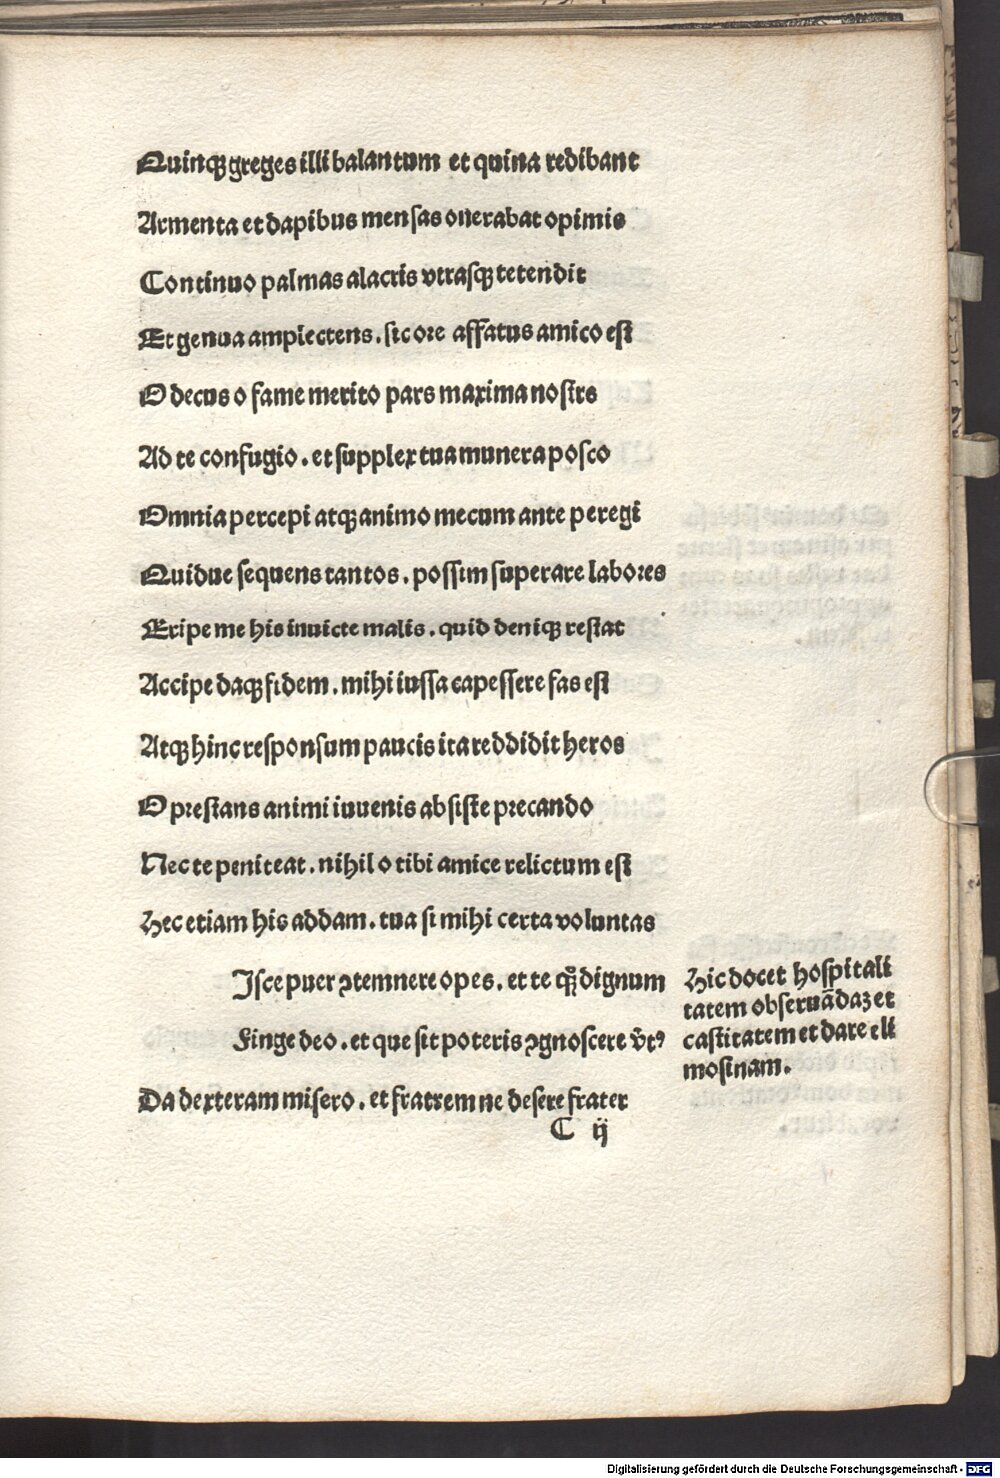 Quinqꝫ greges illi balantum et quina redibant
Armenta et dapibus mensas onerabat opimis
Continuo palmas alacris vtrasqꝫ tetendit
Et genua amplectens. sic ore affatus amico est
O decus o fame merito pars maxima nostre
Ad te confugio. et supplex tua munera posco
Omnia percepi atqꝫ animo mecum ante peregi
Quidue sequens tantos. possim superare labores
Eripe me his inuicte malis. quid deniqꝫ restat
Accipe daqꝫ fidem. mihi iussa capessere fas est
Atqꝫ hinc responsum paucis ita reddidit heros
O prestans animi iuuenis absiste precando
Nec te peniteat. nihil o tibi amice relictum est
Hec etiam his addam. tua si mihi certa voluntas
Isce puer ↄtemnere opes. et te qꝫ̃ dignum
Finge deo. et que sit poteris ↄgnoscere v̑tꝰ
Da dexteram misero. et fratrem ne desere frater
C ij
Hic docet hospitali
tatem obseruãdaꝫ et
castitatem et dare eli
mosinam.
Digitalisierung gefördert durch die Deutsche Forschungsgemeinschaft - DFG